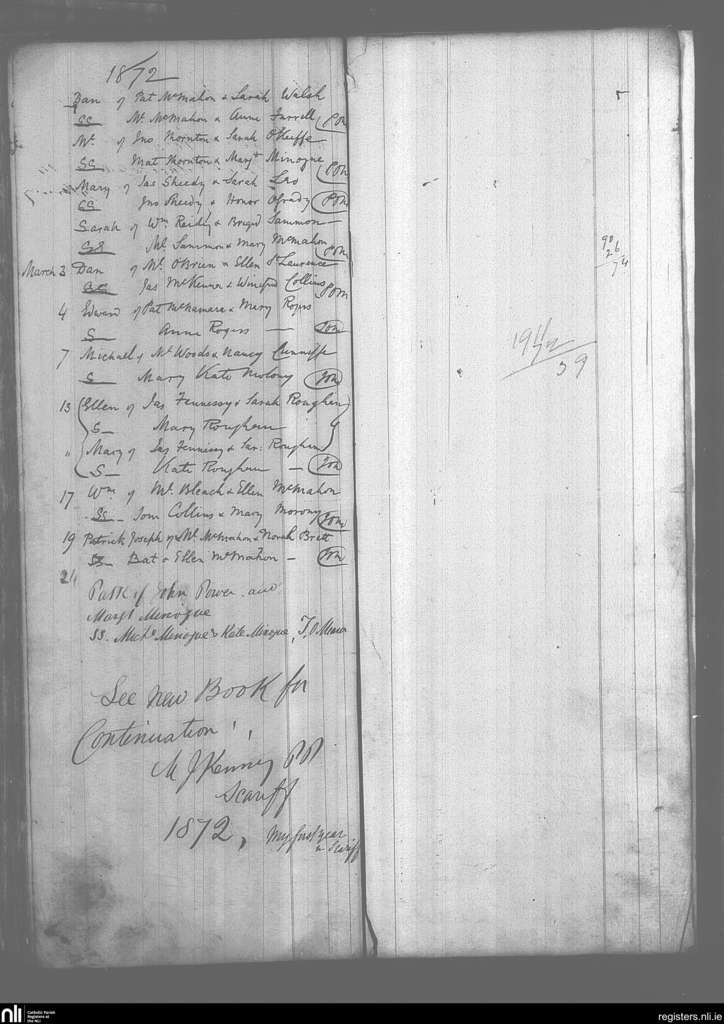 1872
Dan of Pat McMahon & Sarah Walsh
SS Ml. McMahon & Anne Farrell
Ml. of Jno Thornton & Sarah O'Keiffe
SS Mat Thornton & Margt Minogue
Mary of Jas Sheedy & Sarah
SS Jno Sheedy & Honor O'Grady
Sarah of Wm Reidy & Bridgd Sammon
SS Ml. Sammon & Mary McMahon
March 3 Dan of Ml. O'Brien & Ellen St Laurence
SS Jas McKenna & Winifred Collins
4 Edward of Pat McNamara & Mary Rogers
S Anne Rogers
7 Michael of Ml Woods & Nancy Cunniffe
S Mary Kate Molony
13 Ellen of Jas Fennessy & Sarah Roughan
S Mary Roughan
" Mary of Jas Fennessy & Sar: Roughan
S Kate Roughan
17 Wm of Ml. Bleach & Ellen McMahon
SS Tom Collins & Mary Morony
19 Patrick Joseph of Ml McMahon & Norah Brett
SS Bat & Ellen McMahon
24
Patk of John Power and
Margt Minogue
SS. Michl Minogue & Kate Minogue, T. O'Meara
See new Book for
Continuation
M J Kenny PP
Scariff
1872, My first year
in Scariff
90
26
74
39
nli
Catholic Parish
Registers at
the NLI
registers.nli.ie